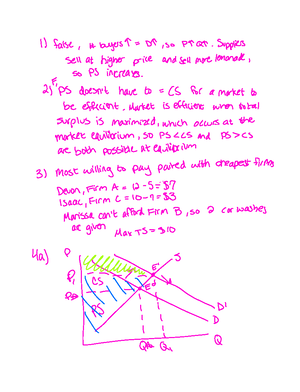 1) false, # buyers ↑ = D↑, so P↑ Q↑. Suppliers
sell at higher price and sell more lemonade,
so PS increases.
2) F, PS doesn't have to = CS for a market to
be efficient. Market is efficient when total
surplus is maximized, which occurs at the
market equilibrium, so PS < CS and PS > CS
are both possible at equilibrium
3) Most willing to pay paired with cheapest firms
Devon, Firm A = 12 - 5 = $7
Isaac, Firm C = 10 - 7 = $3
Marissa can't afford Firm B, so 2 car washes
are given
Max TS = $10
4a)
P
S
P₁
E'
CS
E
PS
D'
D
Q